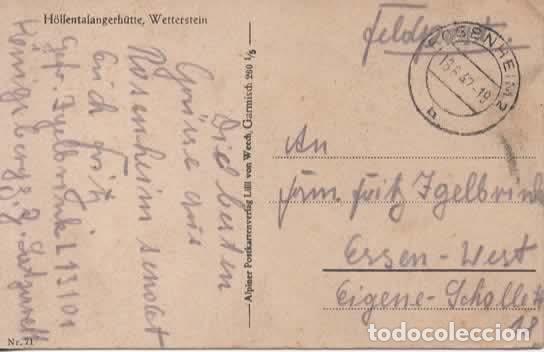 Höllentalangerhütte, Wetterstein
Die besten
Grüsse aus
Rosenheim sendet
euch Fritz
Gefr. Igelbrink L 13101
Königsberg
Nr. 71
Alpiner Postkartenverlag Lilli von Weech, Garmisch 260 1/5
Feldpost
ROSENHEIM 2
An
Fam. Fritz Igelbrink
Essen-West
Eigene-Scholle
18
todocoleccion